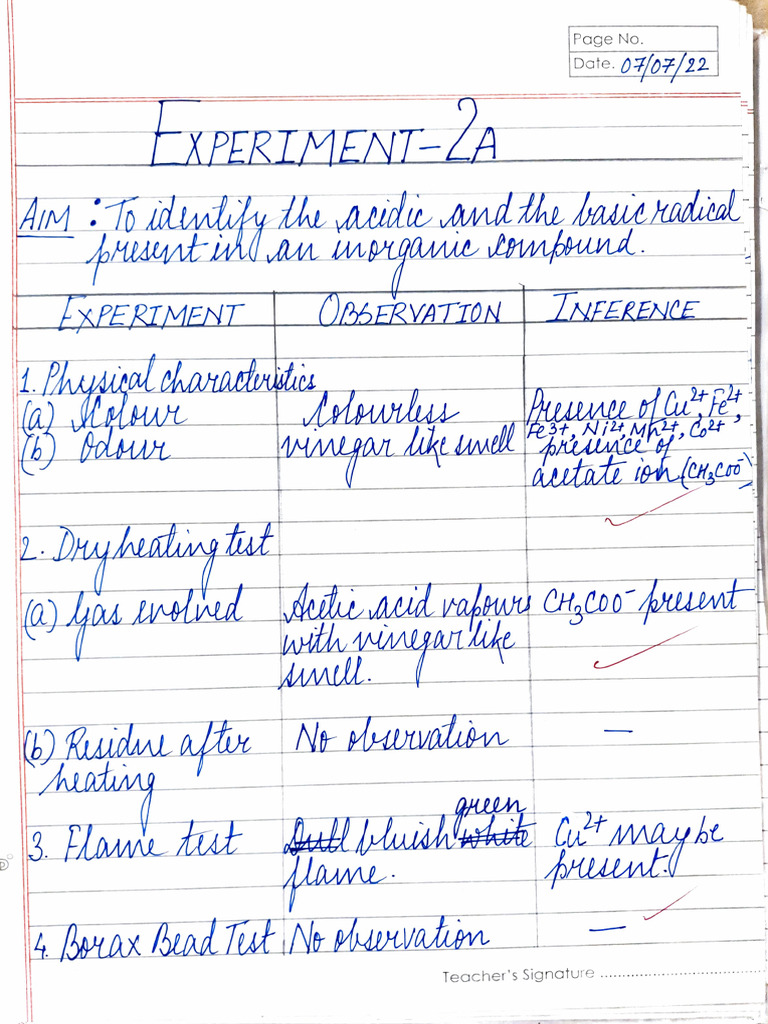 Page No.
Date. 07/07/22
EXPERIMENT-2A
AIM : To identify the acidic and the basic radical
present in an inorganic compound.
EXPERIMENT OBSERVATION INFERENCE
1. Physical characteristics
(a) Colour Colourless Presence of Cu2+, Fe2+,
Fe3+, Ni2+, Mn2+, Co2+
(b) Odour vinegar like smell presence of
acetate ion (CH3COO-)
2. Dry heating test
(a) Gas evolved Acetic acid vapours CH3COO- present
with vinegar like
smell.
(b) Residue after No observation —
heating
green
3. Flame test Dull bluish white Cu2+ maybe
flame. present.
4. Borax Bead Test No observation —
Teacher's Signature